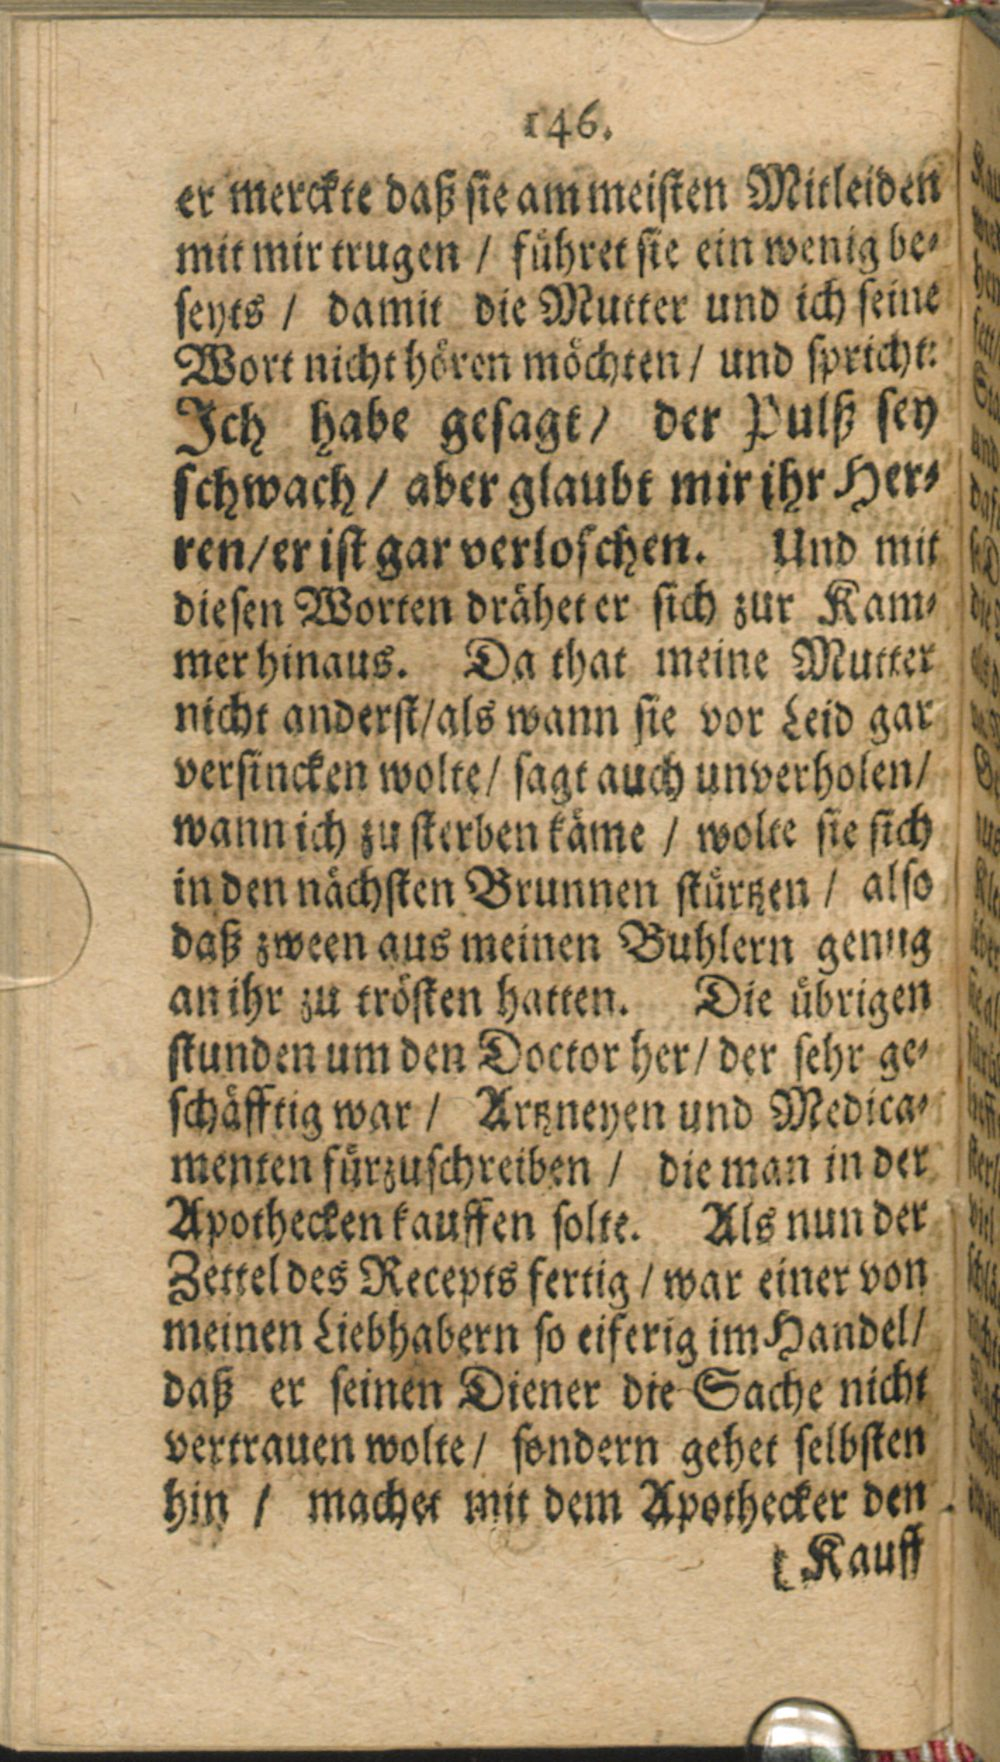 146.
er merckte daß sie am meisten Mitleiden
mit mir trugen / führet sie ein wenig be-
seyts / damit die Mutter und ich seine
Wort nicht hören möchten / und spricht:
Ich habe gesagt / der Pulß sey
schwach / aber glaubt mir ihr Her-
ren / er ist gar verloschen. Und mit
diesen Worten drähet er sich zur Kam-
mer hinaus. Da that meine Mutter
nicht anderst / als wann sie vor Leid gar
versincken wolte / sagt auch unverholen /
wann ich zu sterben käme / wolte sie sich
in den nächsten Brunnen stürtzen / also
daß zween aus meinen Buhlern genug
an ihr zu trösten hatten. Die übrigen
stunden um den Doctor her / der sehr ge-
schäfftig war / Artzneyen und Medica-
menten fürzuschreiben / die man in der
Apothecken kauffen solte. Als nun der
Zettel des Recepts fertig / war einer von
meinen Liebhabern so eiferig im Handel /
daß er seinen Diener die Sache nicht
vertrauen wolte / sondern gehet selbsten
hin / machet mit dem Apothecker den
Kauff